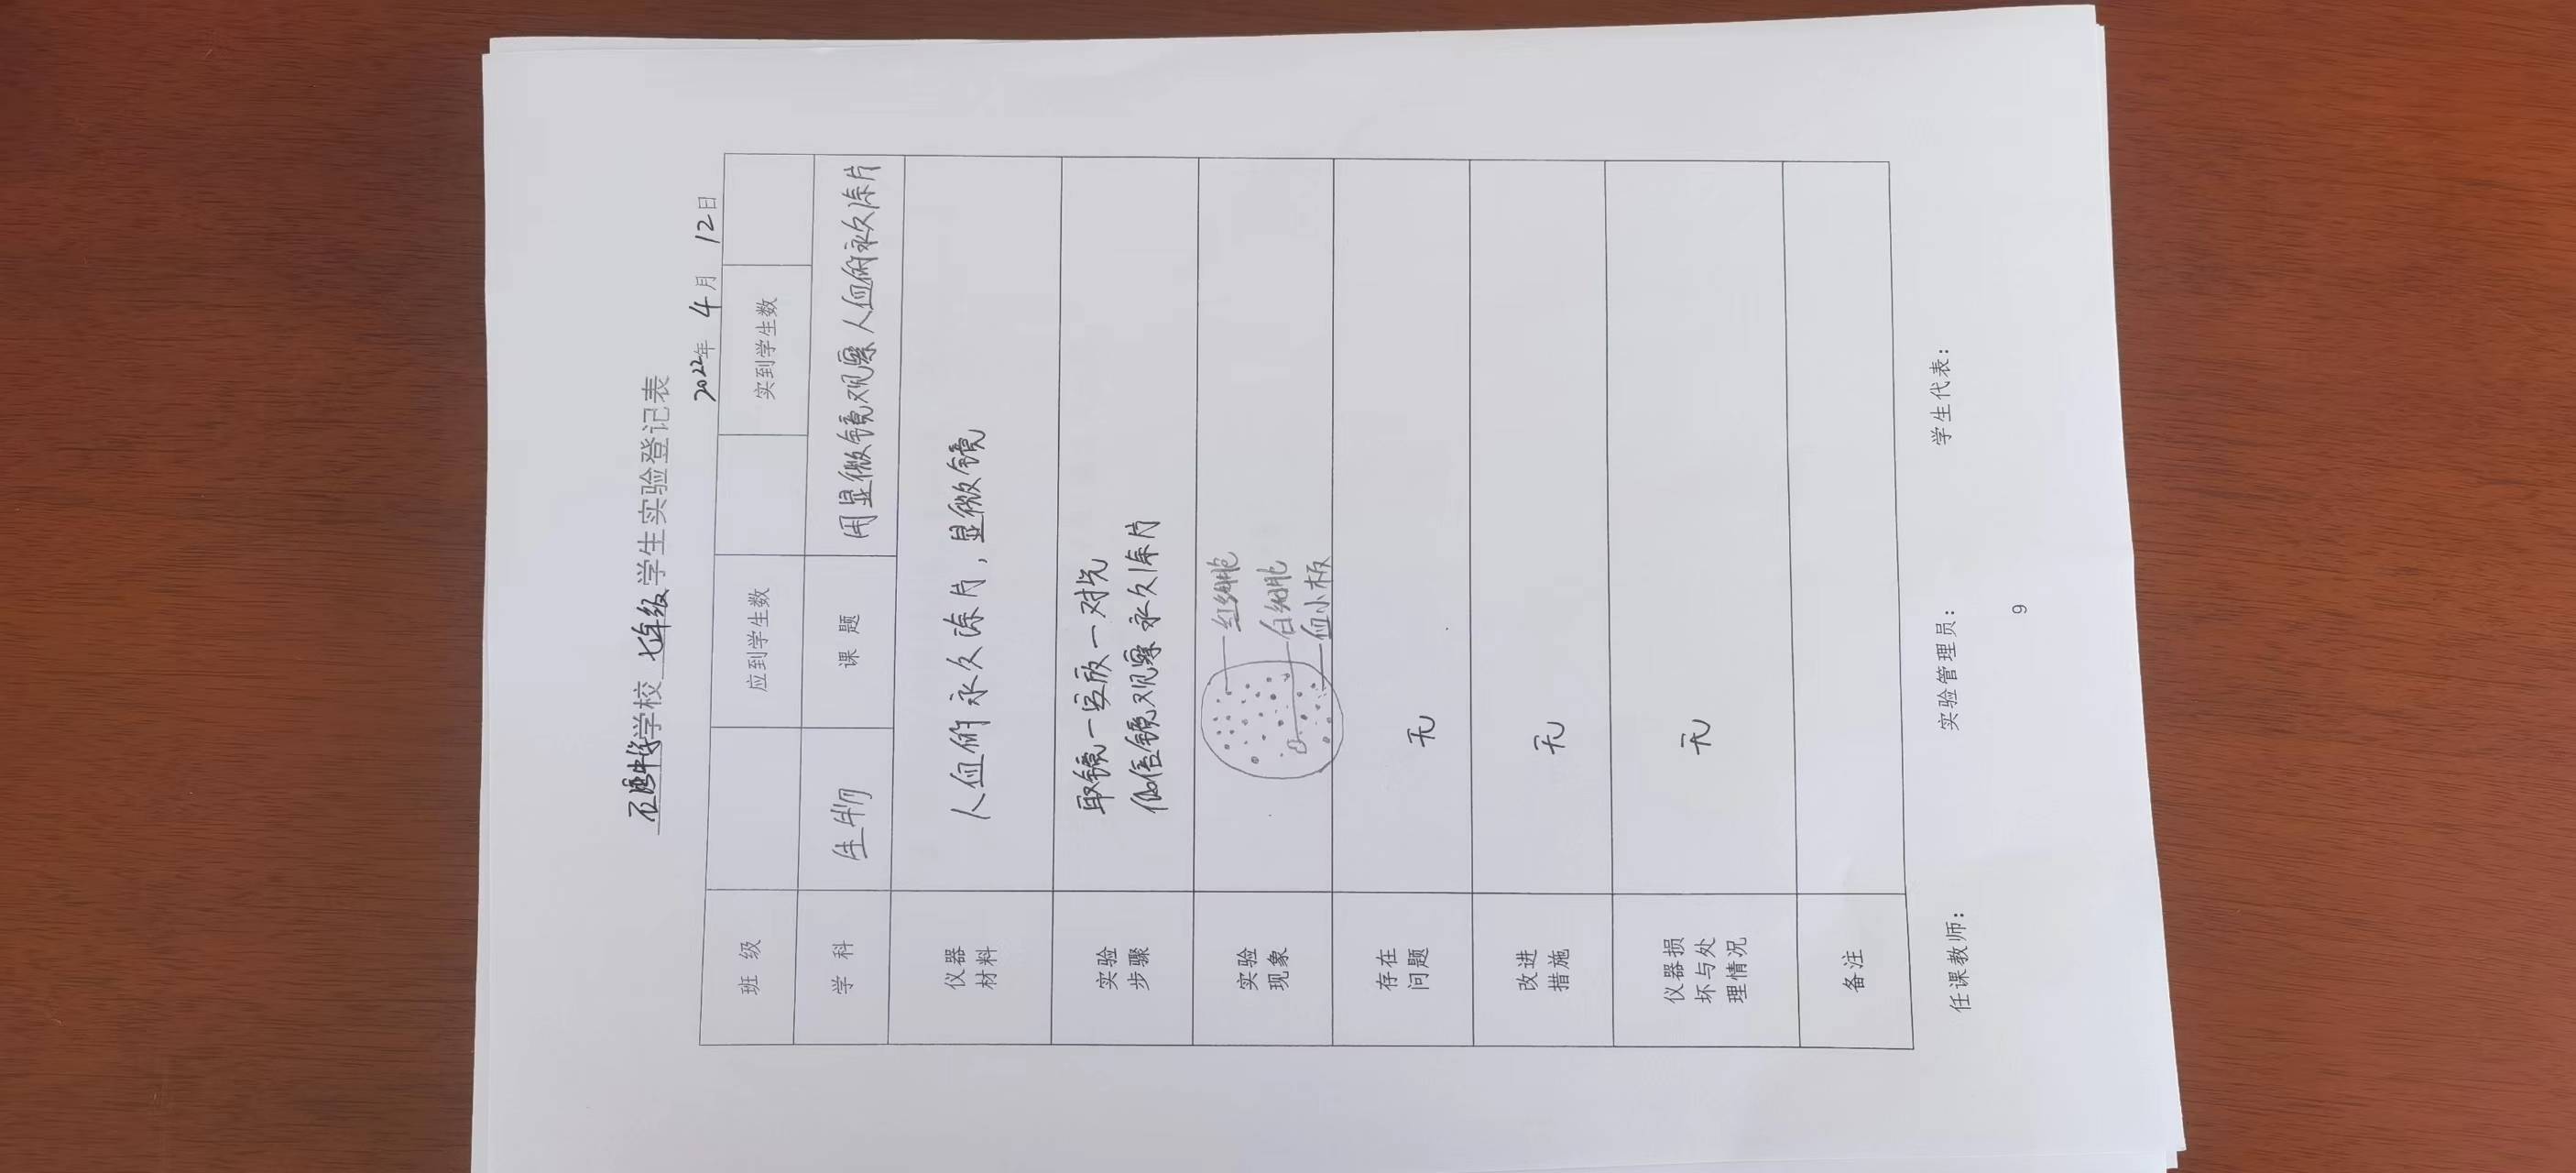 学校 七年级 学生实验登记表
2022年 4月 12日
班级 应到学生数 实到学生数
学科 生物 课题 用显微镜观察人血的永久涂片
仪器
材料
人血的永久涂片，显微镜
实验
步骤
取镜一安放一对光
低倍镜观察永久涂片
实验
现象
红细胞
白细胞
血小板
存在
问题
无
改进
措施
无
仪器损
坏与处
理情况
无
备注
任课教师： 实验管理员： 学生代表：
9